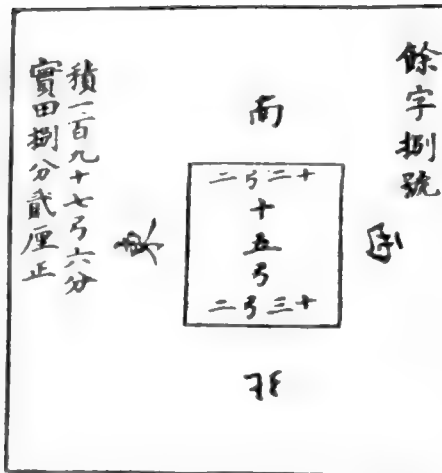 餘字捌號
南
西
十二弓二
十五弓
十三弓二
東
北
積一百九十七弓六分
實田捌分貳厘正